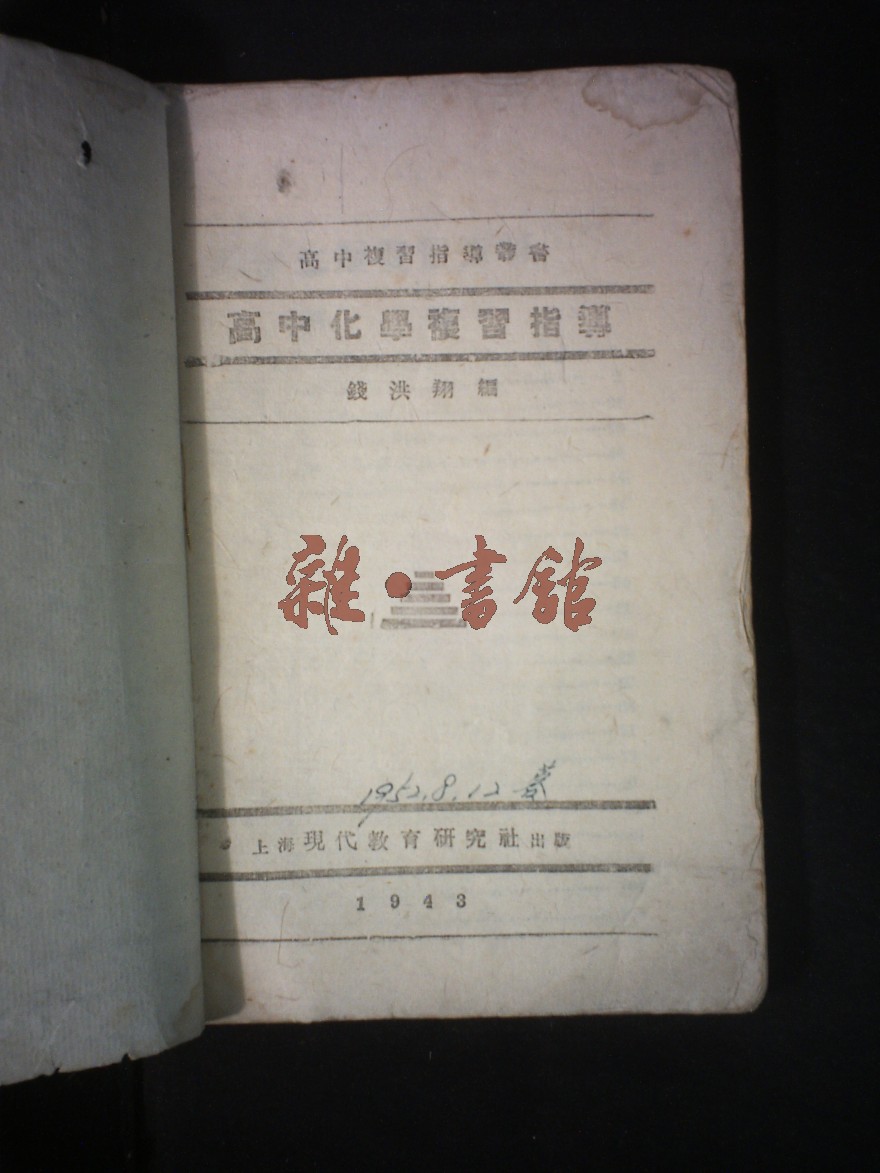 高中複習指導叢書
高中化學複習指導
錢洪翔編
雜·書館
1952.8.12
上海現代教育研究社出版
1943